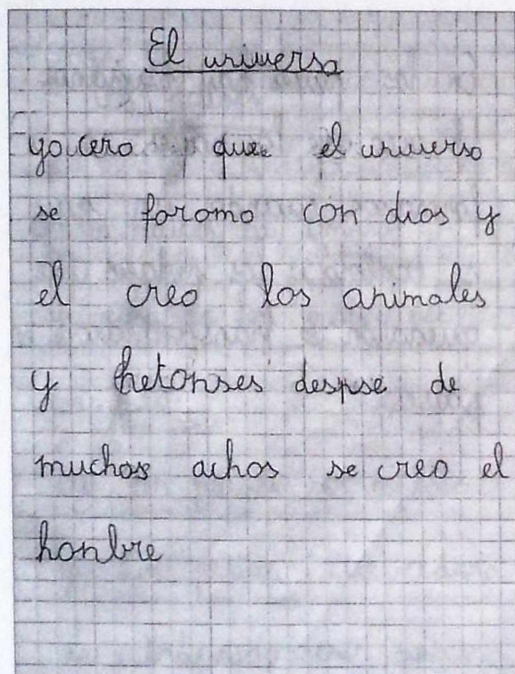 El universo
yo cero que el universo
se foromo con dios y
el creo los animales
y hetonses despse de
muchos achos se creo el
honbre